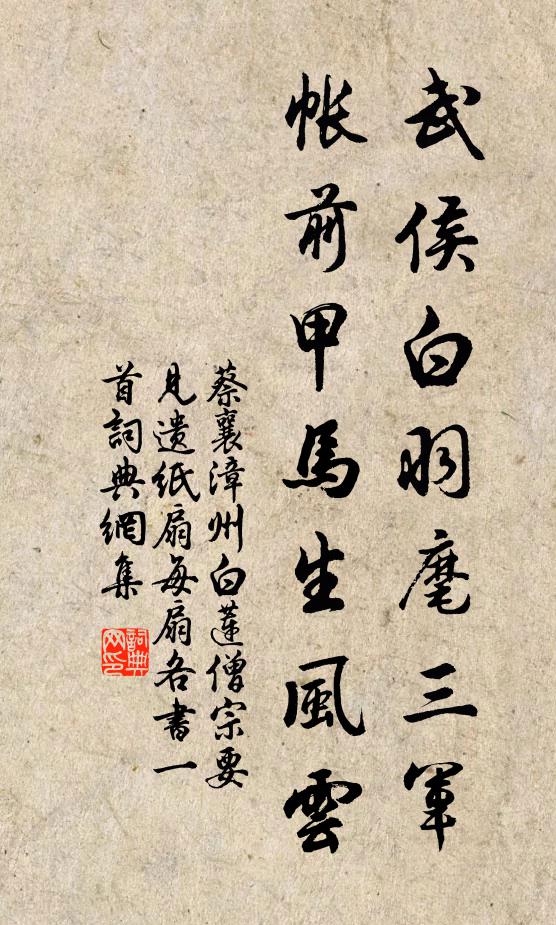 武侯白羽麾三軍
帳前甲馬生風雲
蔡襄漳州白蓮僧宗要
見遺紙扇每扇各書一
首詞典網集
詞典網印